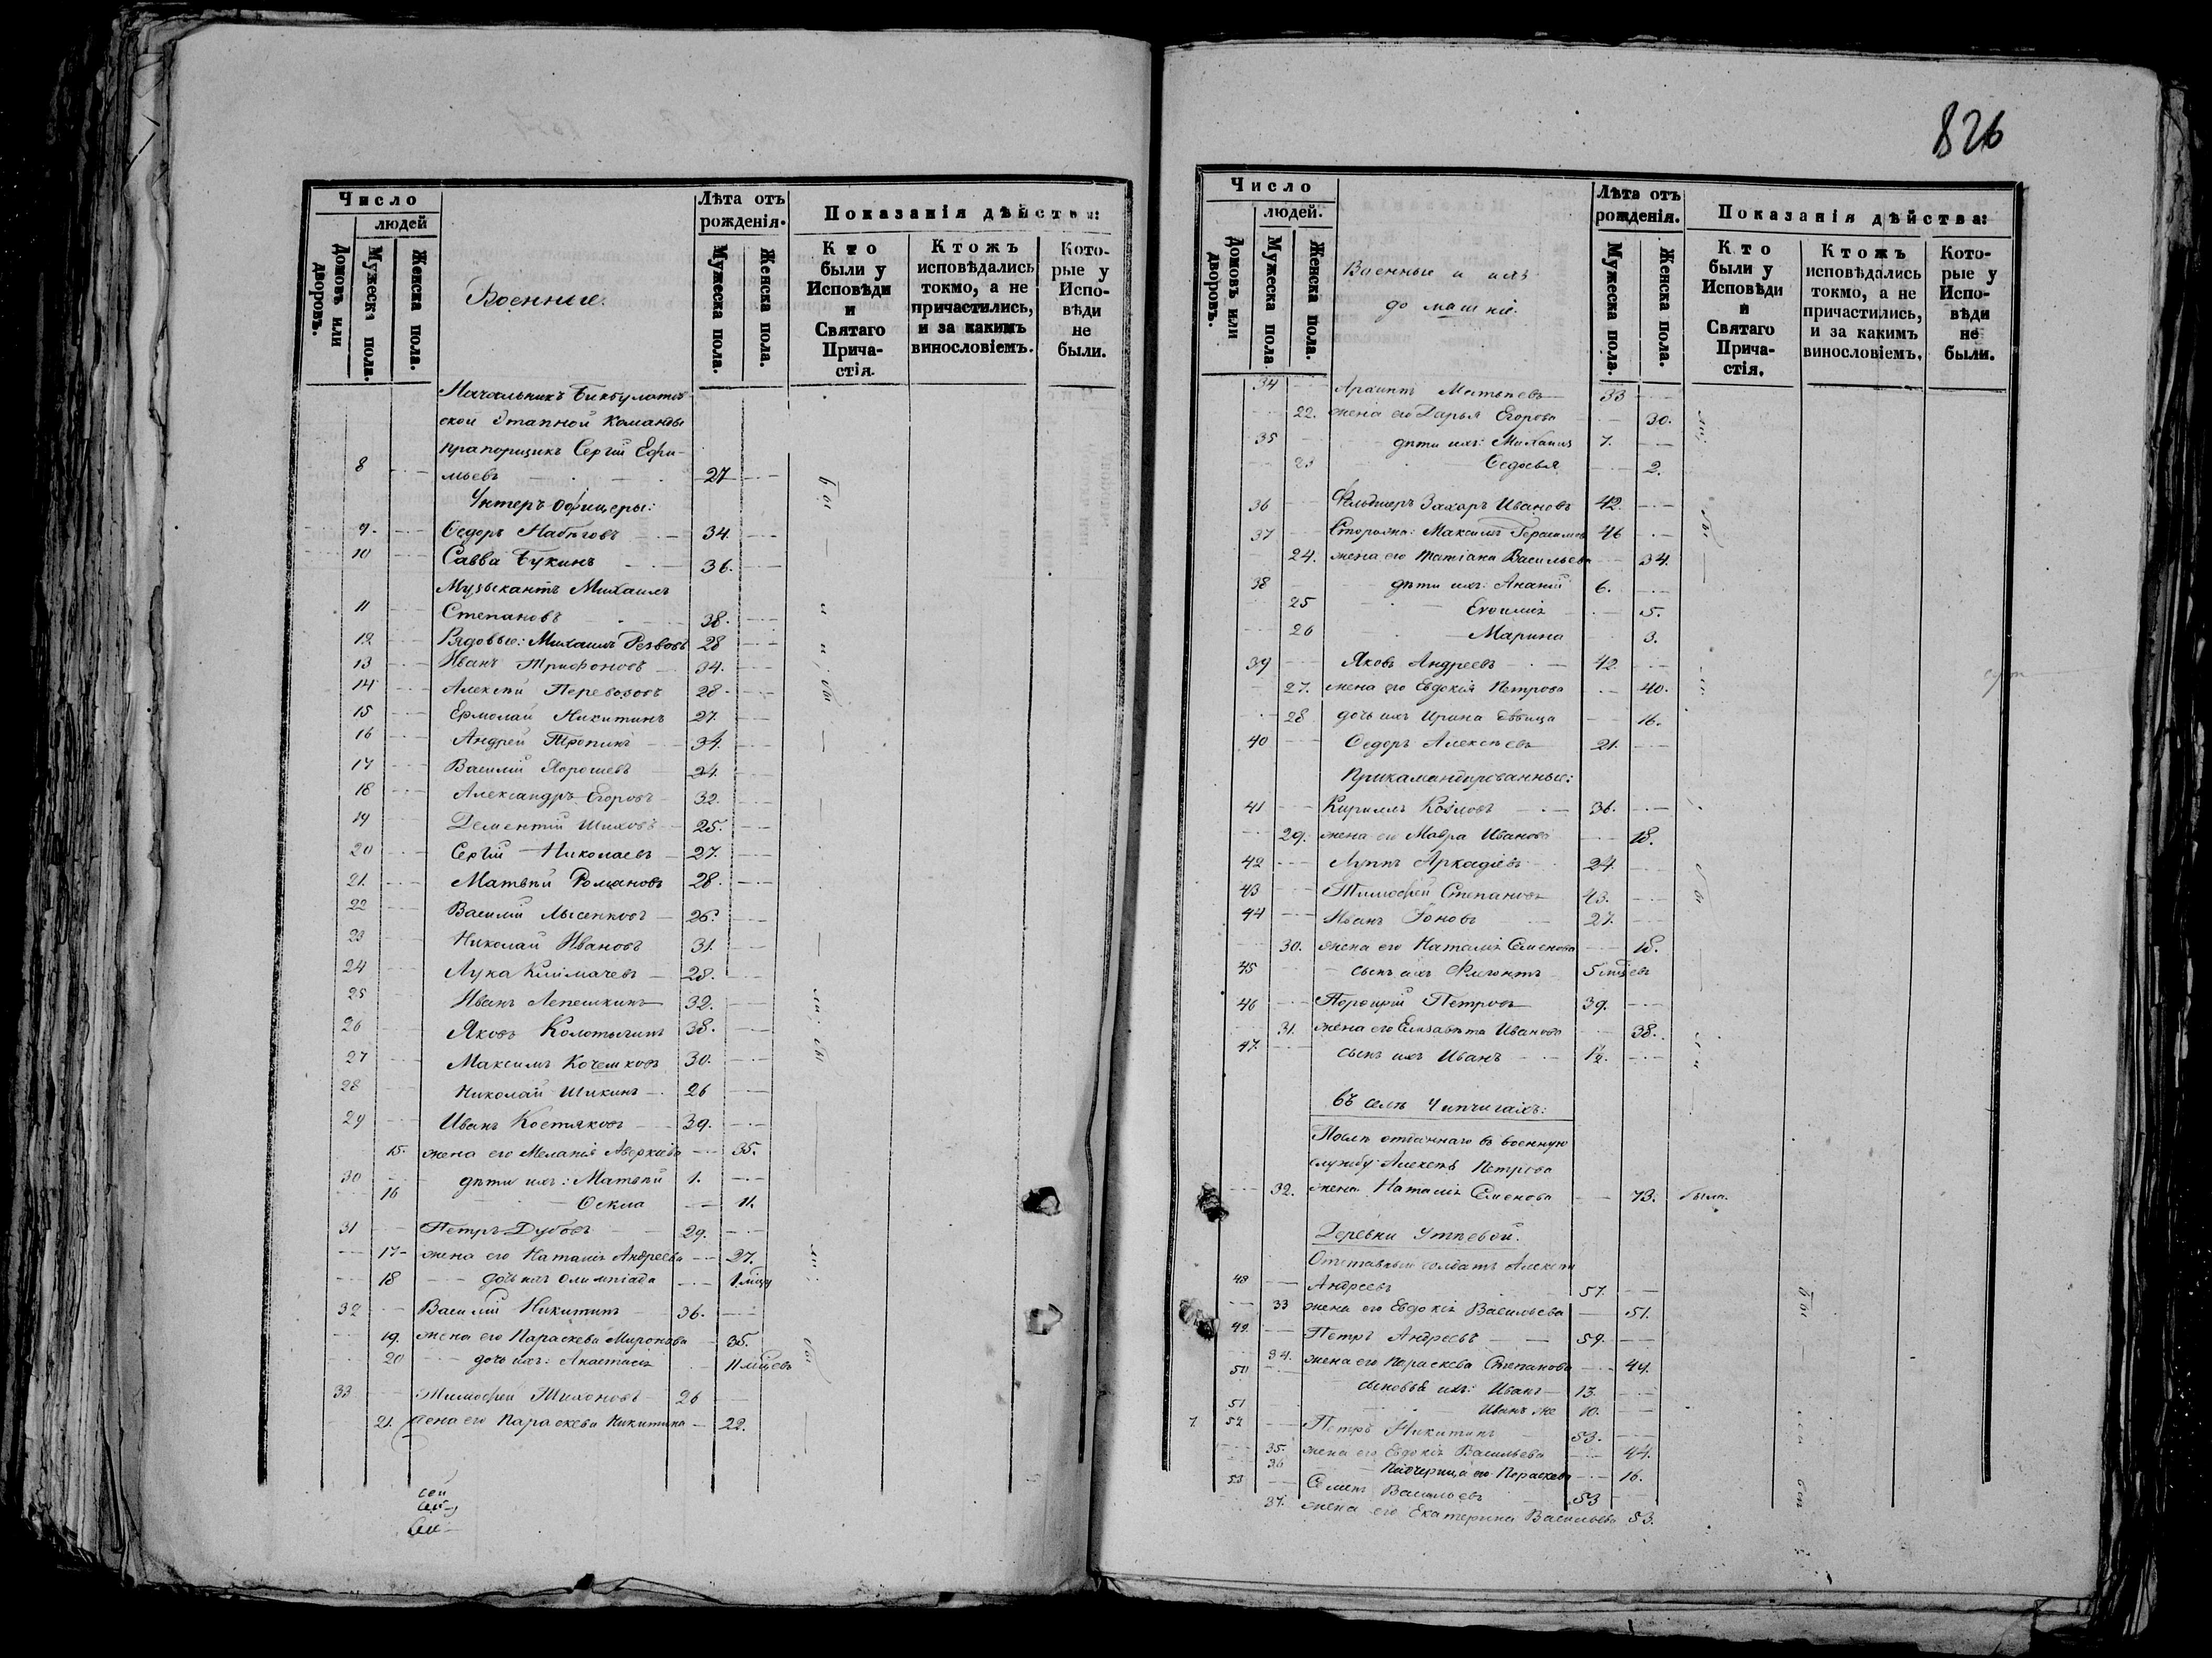 Число
людей
Домовъ или дворовъ.
Мужеска пола.
Женска пола.
Военные.
Лѣта отъ рожденія.
Мужеска пола.
Женска пола.
Показанія дѣйства:
Кто были у Исповѣди и Святаго Причастія.
Ктожъ исповѣдались токмо, а не причастились, и за какимъ винословіемъ.
Которые у Исповѣди не были.
Начальникъ
ской Этапной Команды
прапорщикъ Сергій Ефи-
8 мьевъ 27
Унтеръ-Офицеры:
9. Ѳедоръ Набѣговъ 34.
10 Савва Букинъ 36.
Музыкантъ Михаилъ
11 Степановъ 38.
12 Рядовые: Михаилъ Резвовъ 28
13 Иванъ Трифоновъ 34.
14 Алексѣй Перевозовъ 28.
15 Ермолай Никитинъ 27.
16 Андрей Тропинъ 34.
17 Василій 24.
18 Александръ Егоровъ 32.
19 Дементій Шиховъ 25.
20 Сергій Николаевъ 27.
21. Матвѣй Романовъ 28.
22 Василій Лысенковъ 26.
23 Николай Ивановъ 31.
24 Лука Климачевъ 28.
25 Иванъ Лепешкинъ 32.
26 Яковъ 38.
27 Максимъ Кочемковъ 30.
28 Николай Шикинъ 26
29 Иванъ Костяковъ 39.
15. жена его Меланія Аверкіева 35.
30 дѣти ихъ: Матвѣй 1.
16 Ѳекла 11.
31 Петръ Дубовъ 29.
17 жена его Наталія Андреева 27.
18 дочь ихъ Олимпіада 1
32 Василій Никитинъ 36.
19. жена его Параскева Миронова 35.
20 дочь ихъ: Анастасія 11
33 Тимофей Тихоновъ 26
21. жена его Параскева Никитина 22.
826
Число
людей.
Домовъ или дворовъ.
Мужеска пола
Женска пола.
Военные и ихъ
домашніе.
Лѣта отъ рожденія.
Мужеска пола.
Женска пола.
Показанія дѣйства:
Кто были у Исповѣди и Святаго Причастія.
Ктожъ исповѣдались токмо, а не причастились, и за какимъ винословіемъ.
Которые у Исповѣди не были.
34 Архиппъ Матвѣевъ 33
22. жена его Дарья Егорова 30.
35 дѣти ихъ: Михаилъ 7.
23 Ѳедосья 2.
36 Фельдшеръ Захаръ Ивановъ 42.
37 Максимъ Герасимовъ 46
24. жена его Татіана Васильева 34.
38 дѣти ихъ: Ананій 6.
25 Евѳимія 5.
26 Марина 3.
39 Яковъ Андреевъ 42.
27. жена его Евдокія Петрова 40.
28 дочь ихъ Ирина девица 16.
40 Ѳедоръ Алексѣевъ 21.
Прикамандированные:
41 Кириллъ Козловъ 36.
29. жена его Мавра Иванова 18.
42 Луппъ Аркадіевъ 24.
43 Тимофей Степановъ 43.
44 Иванъ Іоновъ 27.
30. жена его Наталія Семенова 18.
45 сынъ ихъ Флегонтъ 5
46 Порфирій Петровъ 39.
31. жена его Елизавѣта Иванова 38.
47. сынъ ихъ Иванъ 12.
Въ селѣ Чипчигахъ:
Послѣ отданнаго въ военную
службу Алексѣя Петрова
32. жена Наталія Семенова 73. была.
Деревни Утяевой.
Отставный солдатъ Алексѣй
48 Андреевъ 57.
33 жена его Евдокія Васильева 51.
49. Петръ Андреевъ 59.
34. жена его Параскева Степанова 44.
50 сыновья ихъ: Иванъ 13.
51 Иванъ же 10.
7. 52 Петръ Никитинъ 53.
35. жена его Евдокія Васильева 44.
36 Падчерица его Параскева 16.
53 Семенъ Васильевъ 53
37. жена его Екатерина Васильева 53.